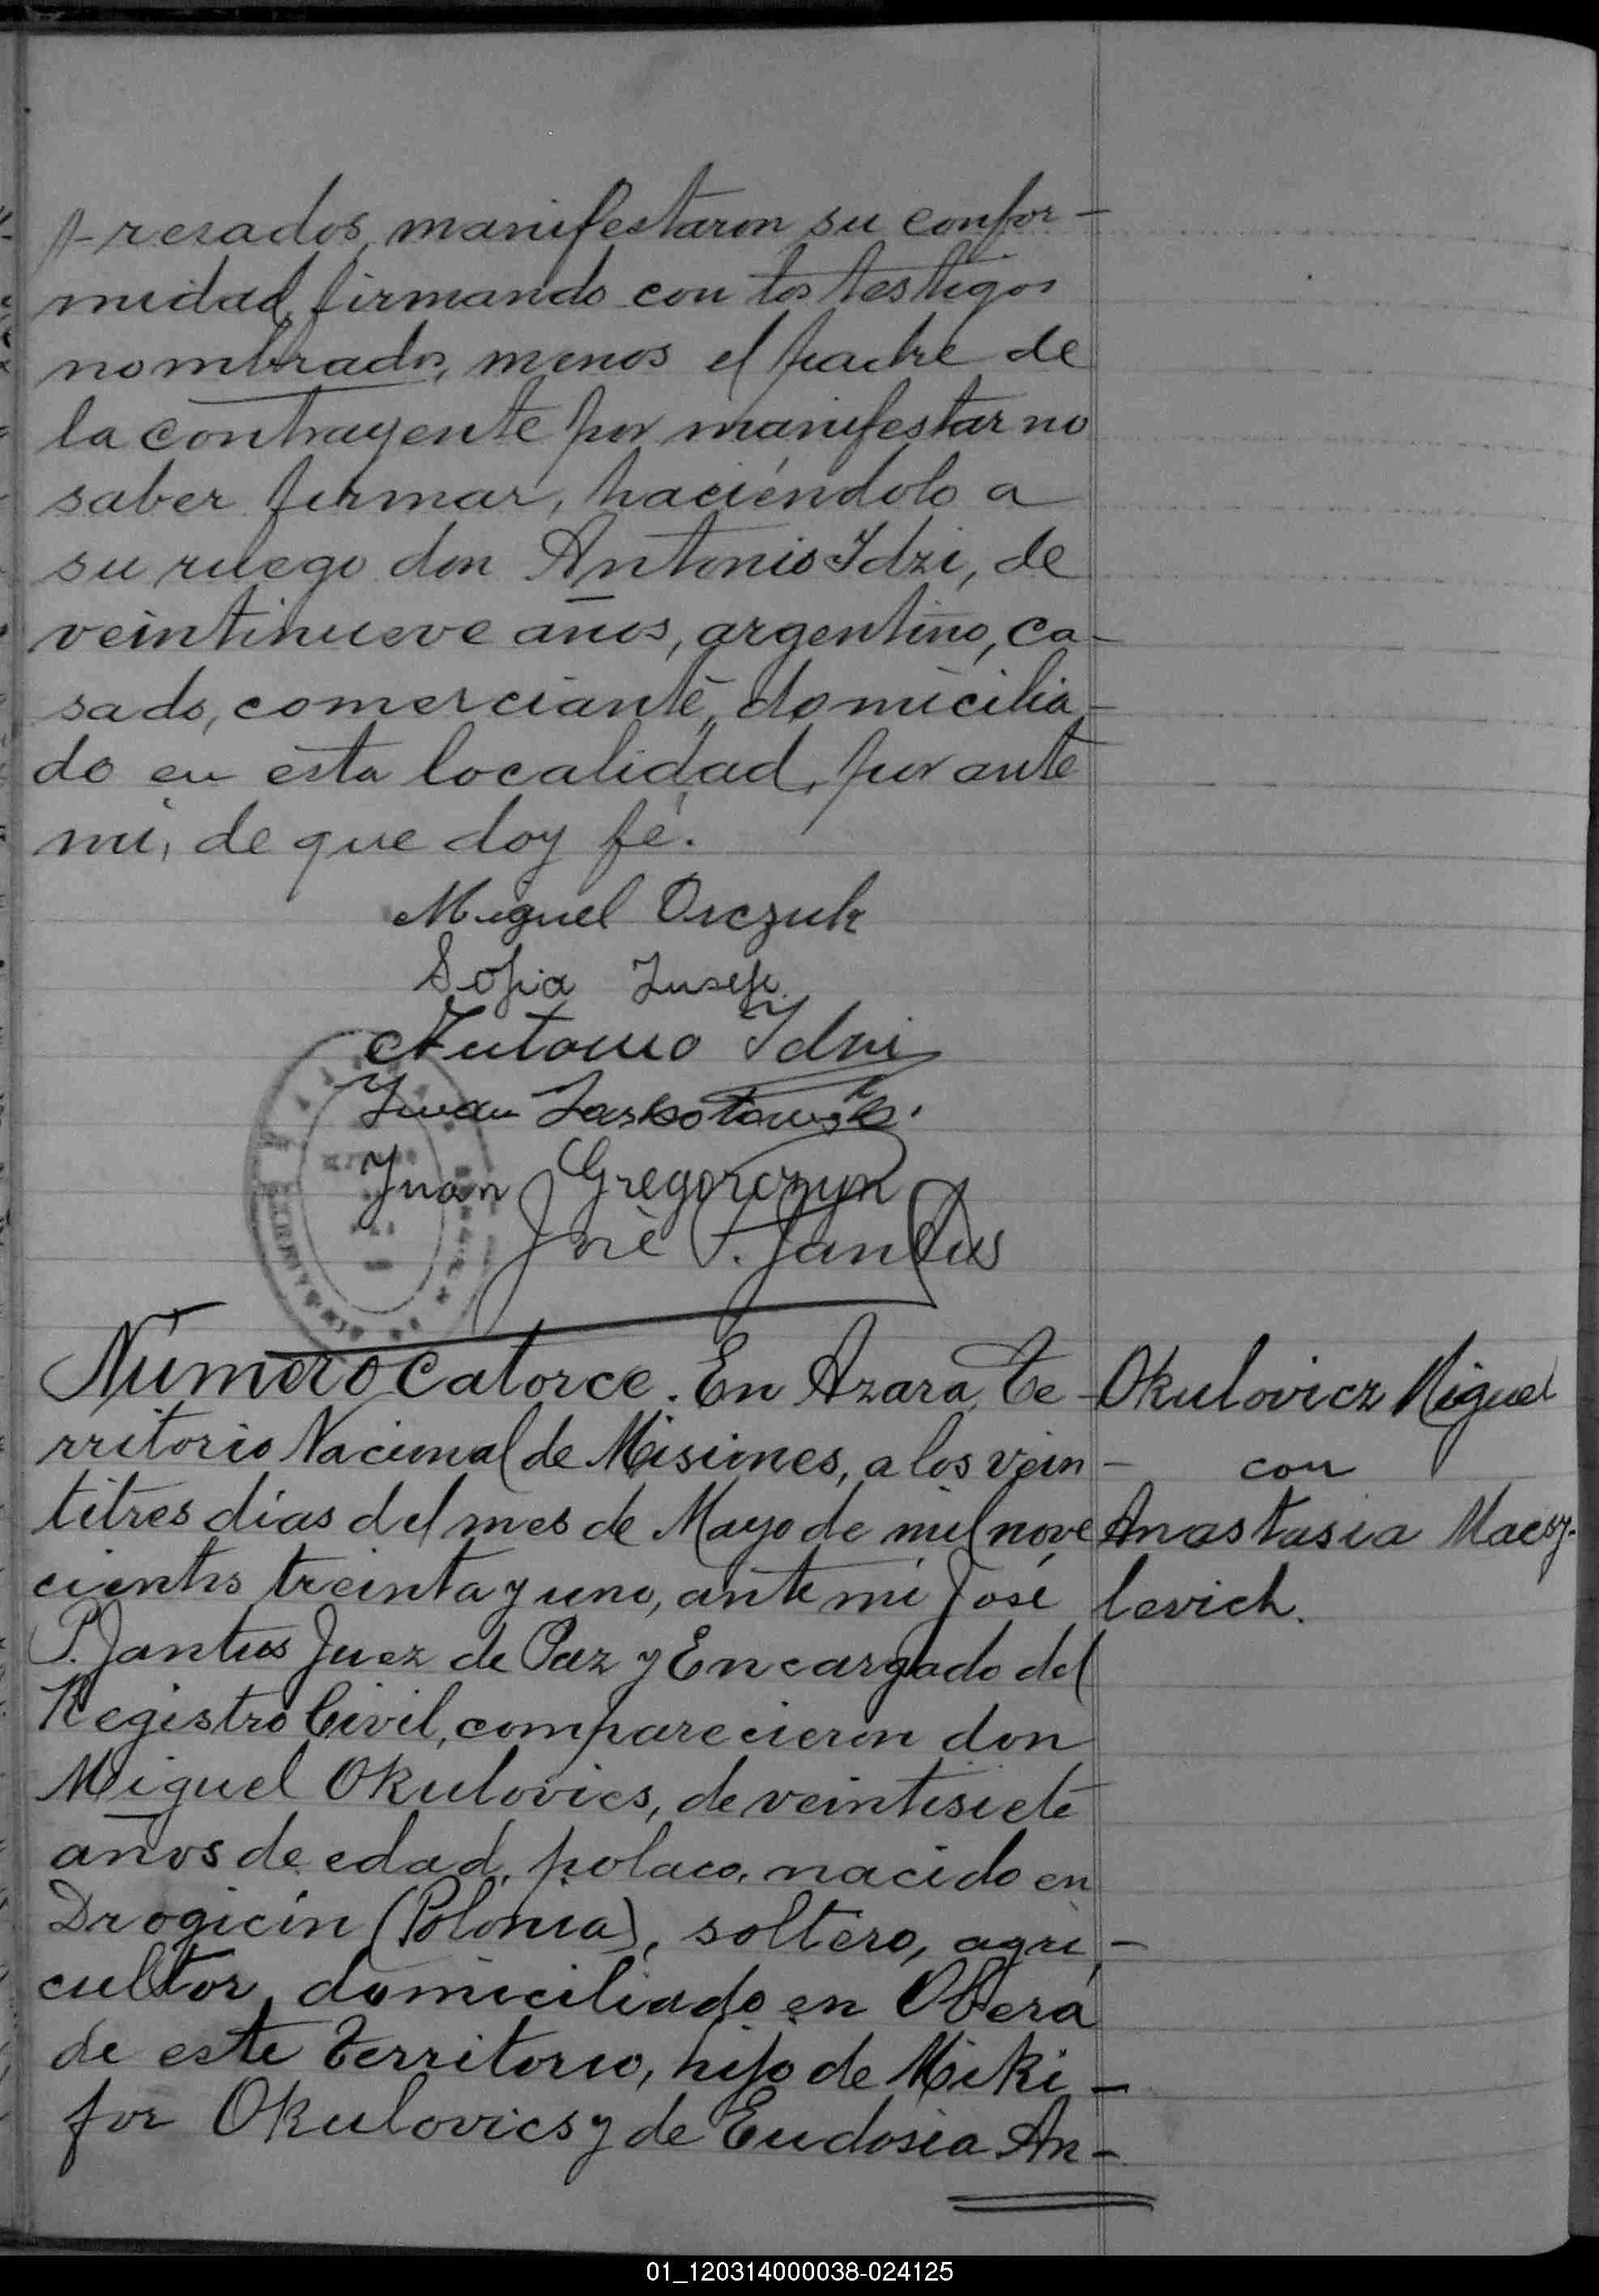 resados, manifestaron su confor-
midad, firmando con los testigos
nombrados, menos el padre de
la contrayente por manifestar no
saber firmar, haciéndolo a
su ruego don Antonio Idzi, de
veintinueve años, argentino, ca-
sado, comerciante, domicilia-
do en esta localidad, por ante
mi, de que doy fé.
Miguel Orczuk
Sofia
Antonio Idzi
Juan
Juan Gregorczyn
José P. Jantus
Número catorce. En Azara, Te-
rritorio Nacional de Misiones, a los vein-
titres días del mes de Mayo de mil nove
cientos treinta y uno, ante mi José
P. Jantus Juez de Paz y Encargado del
Registro Civil, comparecieron don
Miguel Okulovics, de veintisiete
años de edad, polaco, nacido en
Drogicin (Polonia), soltero, agri-
cultor, domiciliado en Oberá
de este Territorio, hijo de Miki-
for Okulovics y de Eudosia An-
Okulovicz Miguel
con
Anastasia Maesy-
levich.
01_120314000038-024125